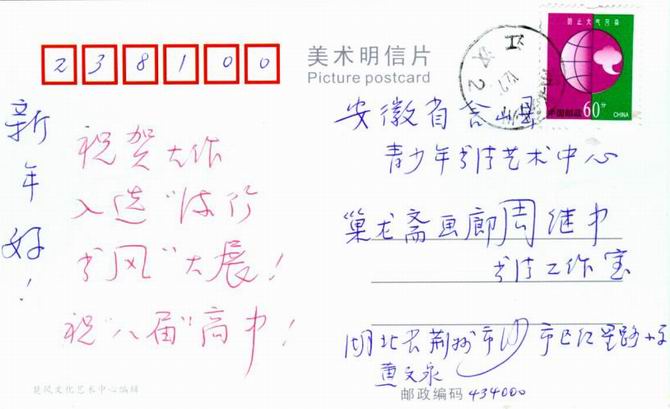 238100
美术明信片
Picture postcard
防止大气污染
中国邮政
60分
CHINA
新年好！
祝贺大作
入选"流行
书风"大展！
祝"八届"高中！
安徽省含山县
青少年书法艺术中心
巢龙斋画廊周继中
书法工作室
湖北省荆州市沙市区红星路
黄文泉
邮政编码 434000
楚风文化艺术中心编辑